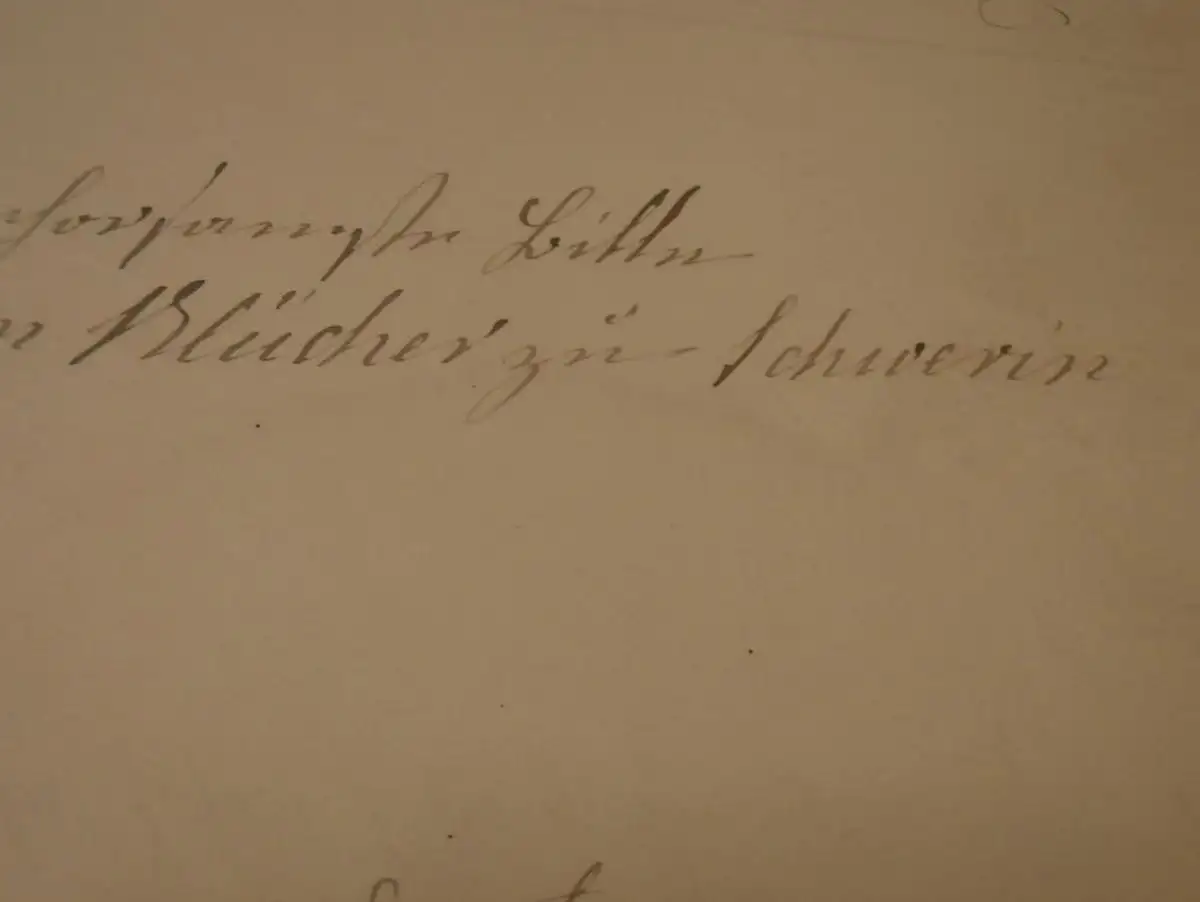 gehorsamste Bitte
n Blücher zu Schwerin